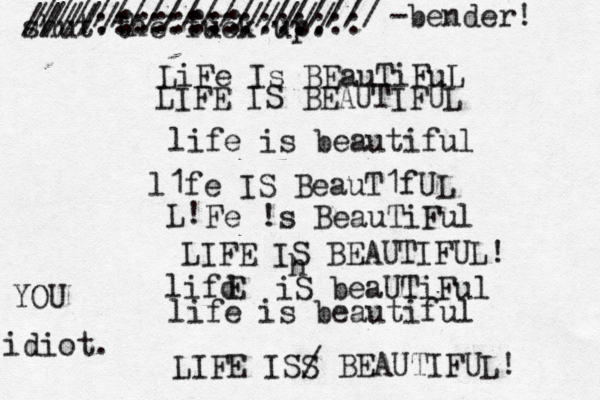 -bender!
LiFe Is BEauTiFuL
LIFE IS BEAUTIFUL
life is beautiful
l1fe IS BeauT1fUL
L!Fe !s BeauTiFul
LIFE IS BEAUTIFUL!
lifE iS beaUTiFul
YOU
life is beautiful
idiot.
LIFE ISS BEAUTIFUL!